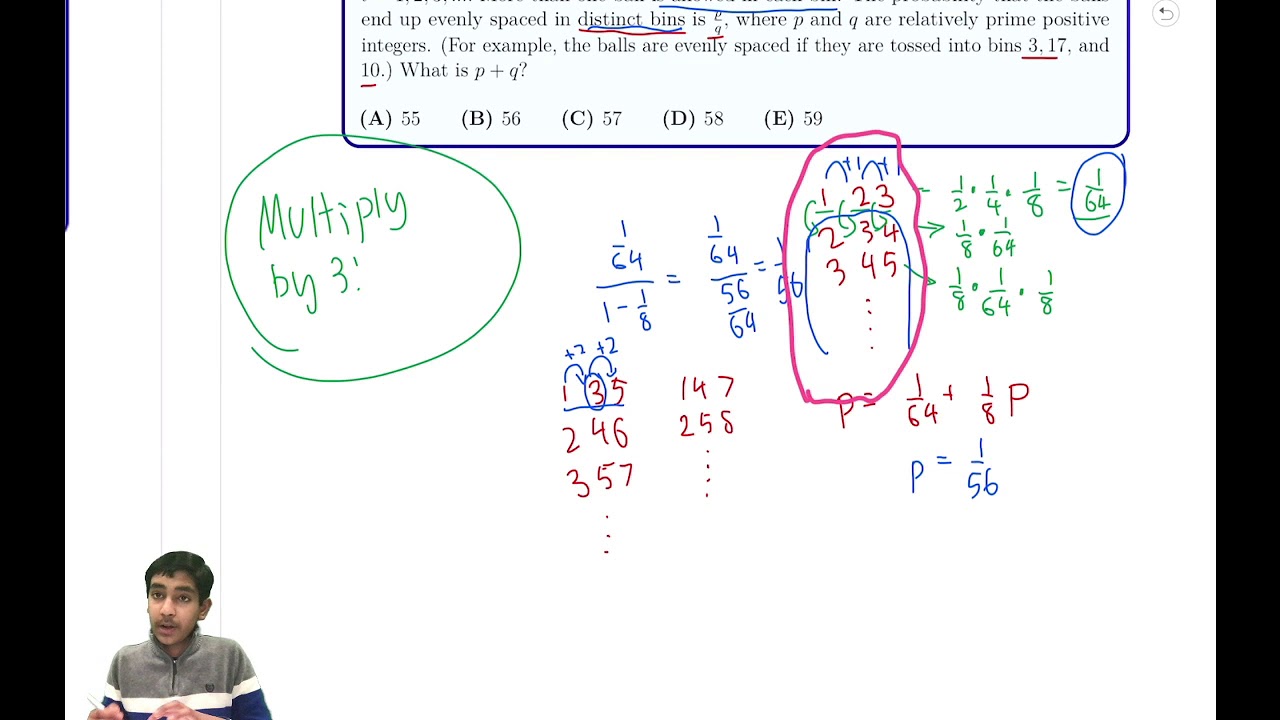 end up evenly spaced in distinct bins is p/q, where p and q are relatively prime positive
integers. (For example, the balls are evenly spaced if they are tossed into bins 3, 17, and
10.) What is p + q?
(A) 55 (B) 56 (C) 57 (D) 58 (E) 59
Multiply
by 3!
+1 +1
1 2 3 - 1/2 · 1/4 · 1/8 = 1/64
2 3 4 → 1/8 · 1/64
3 4 5 → 1/8 · 1/64 · 1/8
(1/64)/(1 - 1/8) = (1/64)/(56/64) = 1/56
+2 +2
1 3 5 1 4 7
2 4 6 2 5 8
3 5 7
P = 1/64 + 1/8 P
P = 1/56